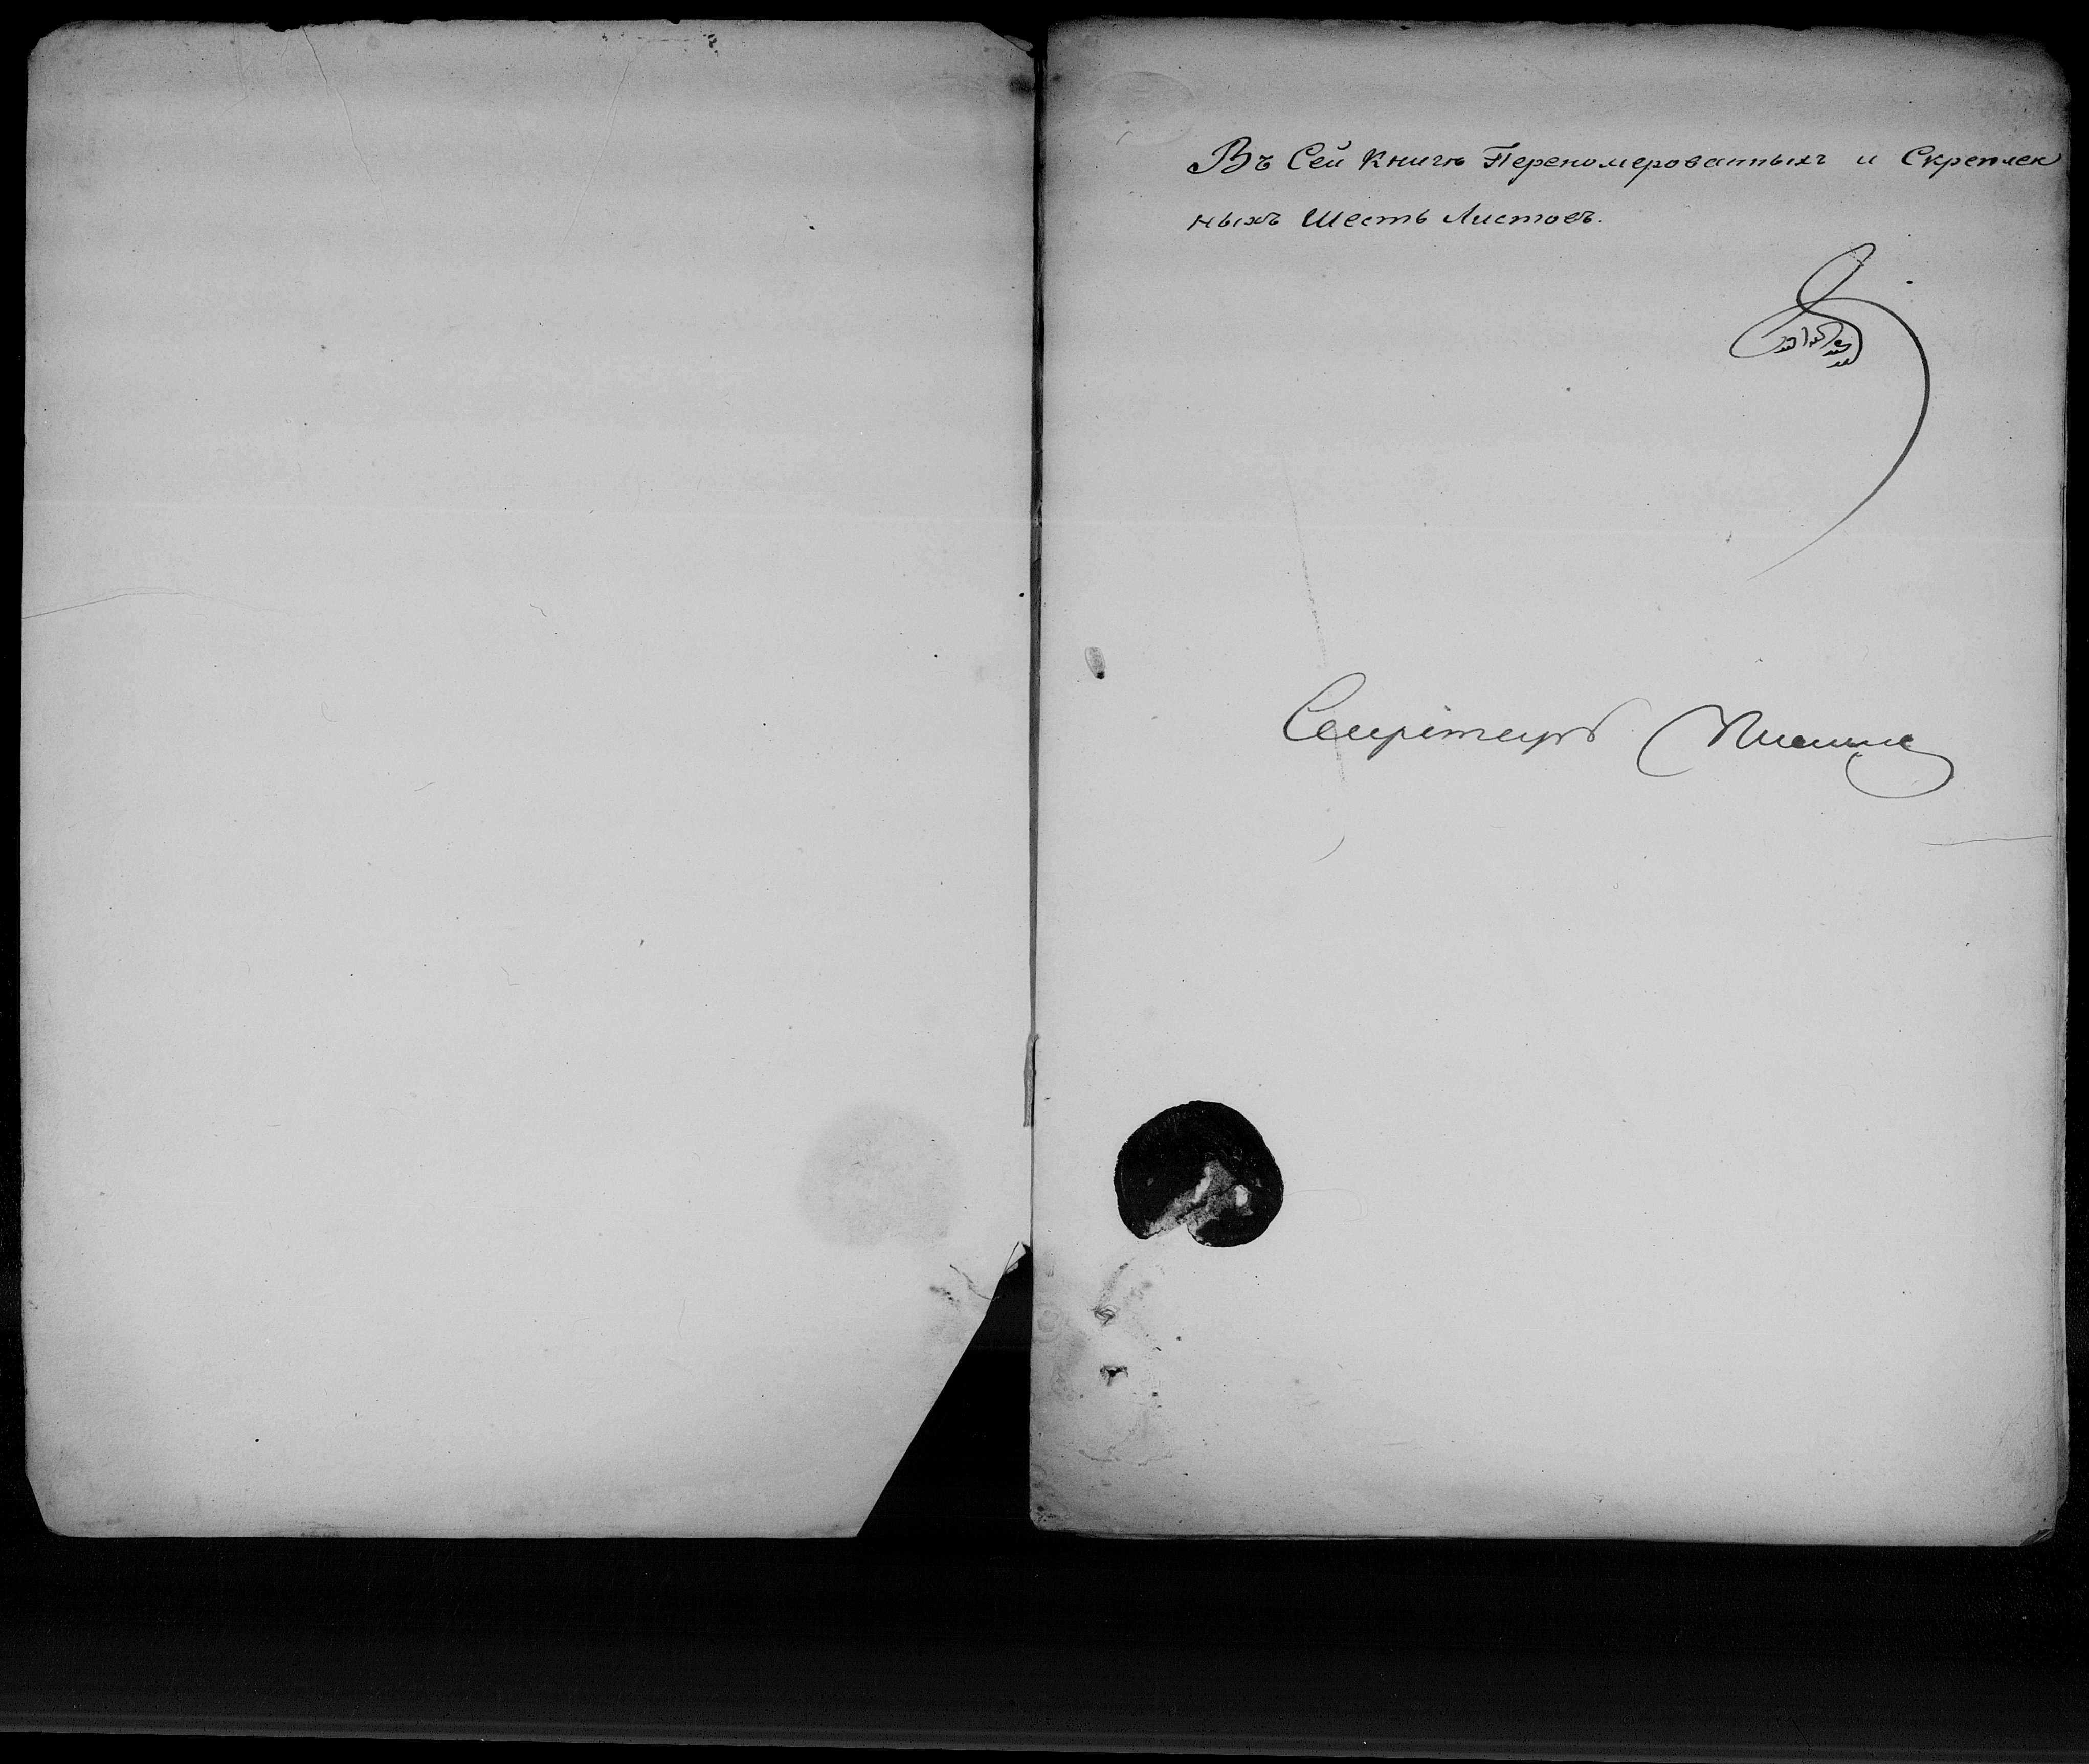 Въ Сей Книгѣ Переномерованныхъ и Скреплен
ныхъ Шесть Листовъ.
Секретарь